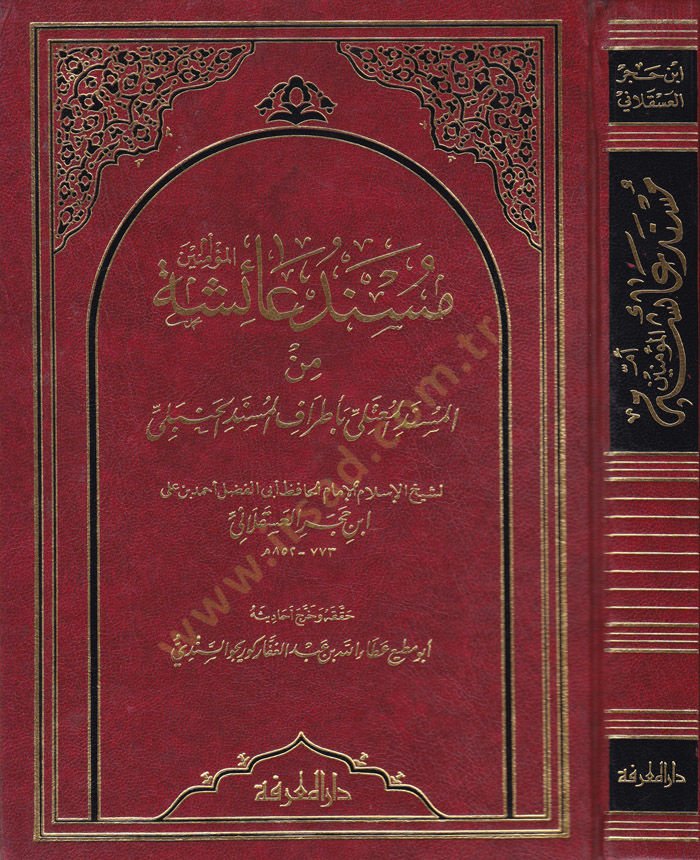 مُسْنَدُ عَائِشَة
المؤمنين
مِنْ
المسند المعتلي بأطراف المسند الحنبلي
لشيخ الإسلام الإمام الحافظ أبي الفضل أحمد بن علي
ابن حجر العسقلاني
٧٧٣ - ٨٥٢ هـ
حققه وخرج أحاديثه
أبو مطيع عطاء الله بن عبد الغفار كوريجو السندي
دار المعرفة
ابن حجر
العسقلاني
مسند عائشة
أم المؤمنين
دار المعرفة